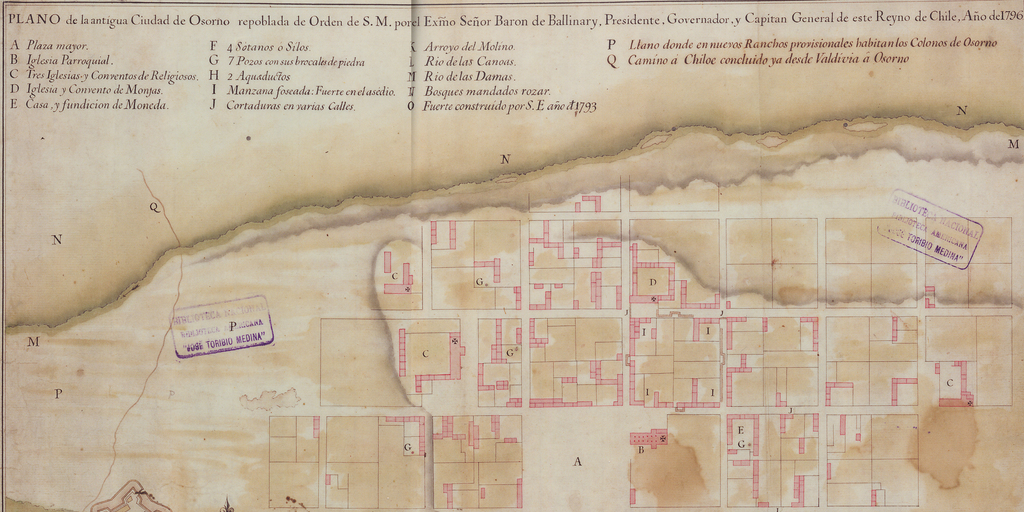 PLANO de la antigua Ciudad de Osorno repoblada de Orden de S. M. por el Exmo Señor Baron de Ballinary, Presidente, Governador, y Capitan General de este Reyno de Chile, Año de 1796
A Plaza mayor.
B Iglesia Parroquial.
C Tres Iglesias y Conventos de Religiosos.
D Iglesia y Convento de Monjas.
E Casa, y fundicion de Moneda.
F 4 Sotanos o Silos.
G 7 Pozos con sus brocales de piedra
H 2 Aquaductos
I Manzana foseada: Fuerte en el asedio.
J Cortaduras en varias Calles.
K Arroyo del Molino.
L Rio de las Canoas.
M Rio de las Damas.
N Bosques mandados rozar.
O Fuerte construido por S. E año d 1793
P Llano donde en nuevos Ranchos provisionales habitan los Colonos de Osorno
Q Camino a Chiloe concluido ya desde Valdivia á Osorno
N
M
N
Q
N
BIBLIOTECA NACIONAL
BIBLIOTECA AMERICANA
"JOSE TORIBIO MEDINA"
C
G
D
J
BIBLIOTECA NACIONAL
BIBLIOTECA AMERICANA
"JOSE TORIBIO MEDINA"
P
M
I
I
C
G
C
P
P
I
I
J
G
A
B
E
G